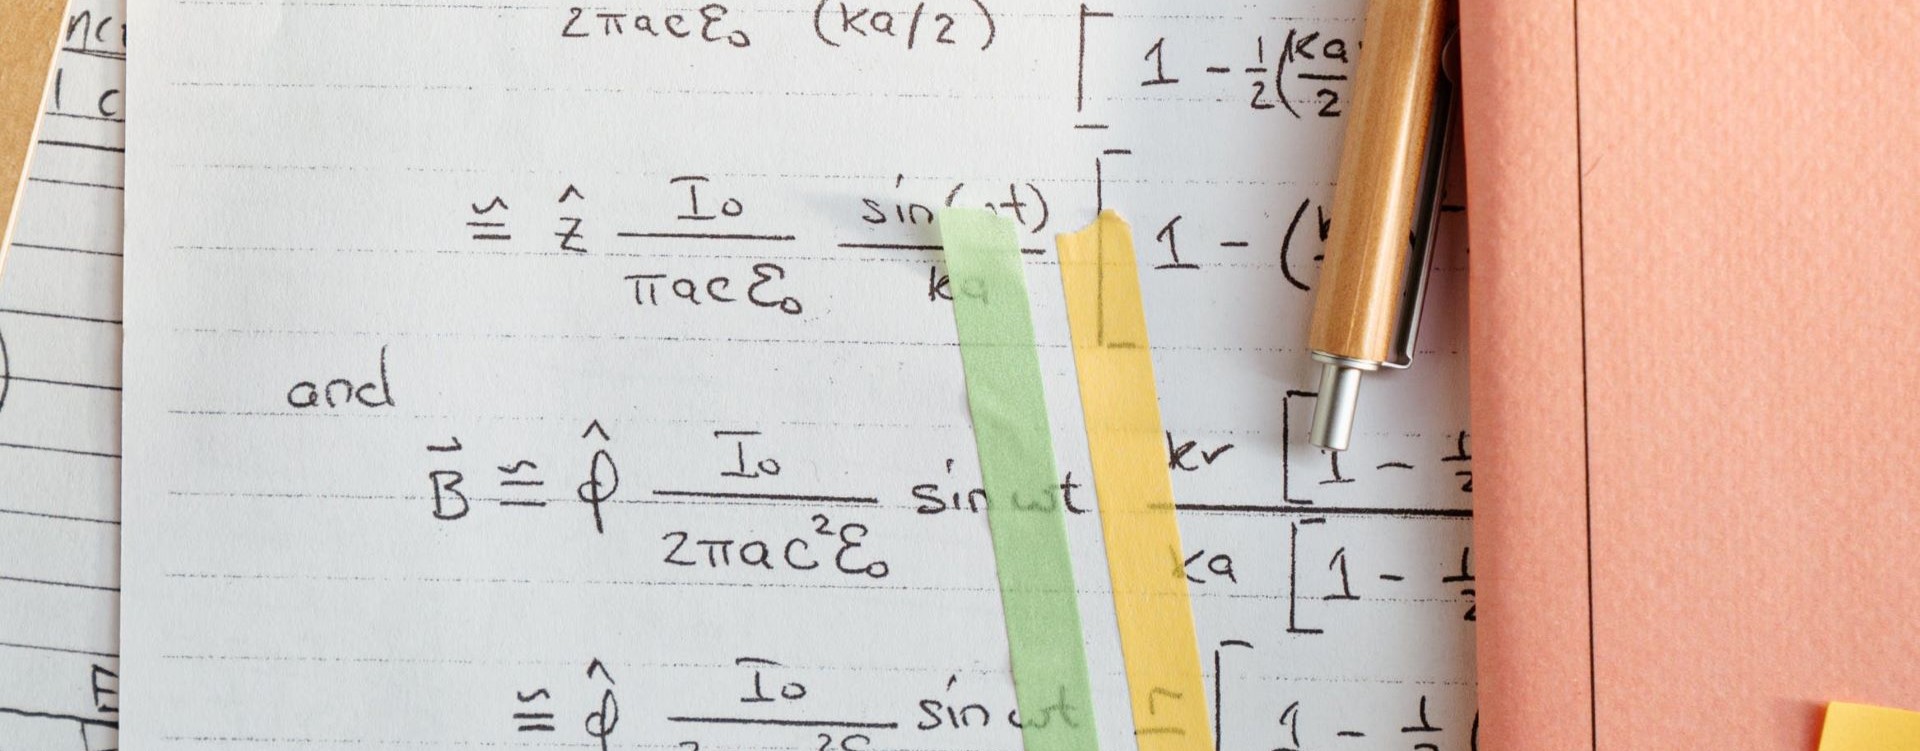 2πacε₀ (ka/2) [ 1 - ½(ka/2
≅ ẑ I₀/πacε₀ sin(ωt)/ka [ 1 - (
and
B⃗ ≅ φ̂ I₀/2πac²ε₀ sin ωt kr [1 - 1/2 / ka [1 - 1/2
≅ φ̂ I₀ sin ωt [ 1 - 1/2 (